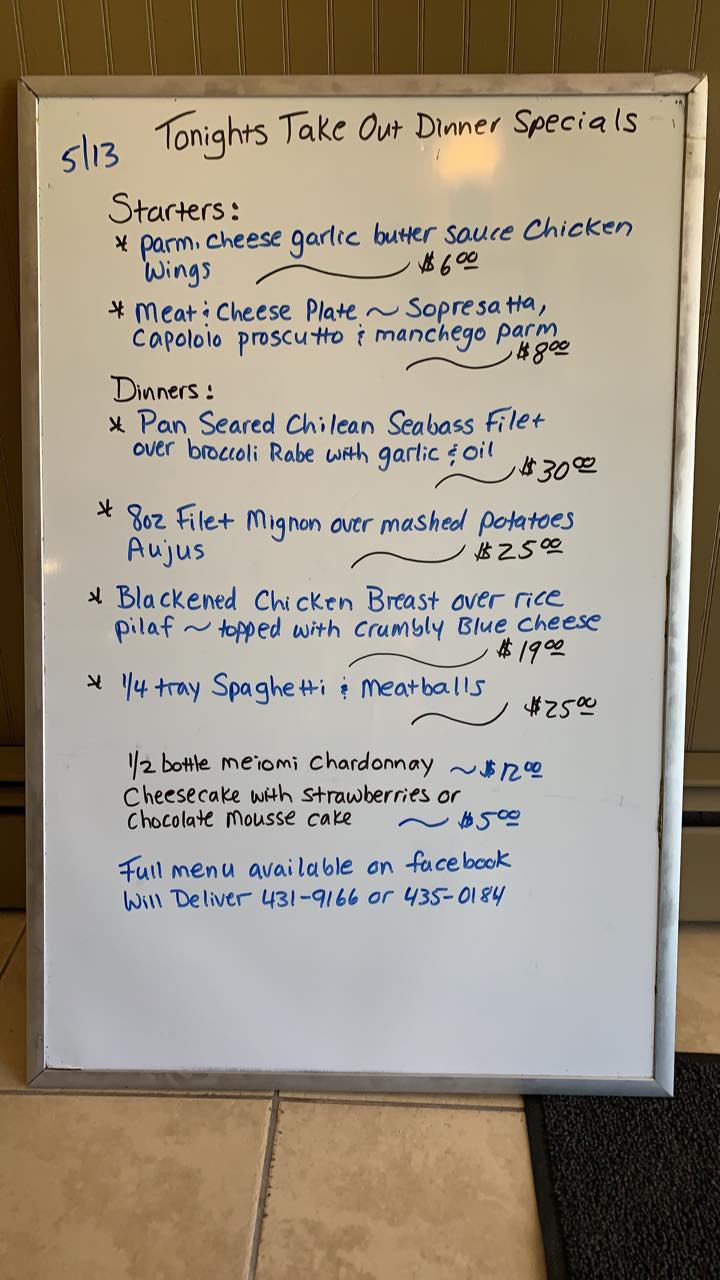 5/13 Tonights Take Out Dinner Specials
Starters:
* Parm. cheese garlic butter sauce Chicken
Wings $6.00
* Meat & Cheese Plate ~ Sopresatta,
Capoloio proscutto & manchego parm
$8.00
Dinners:
* Pan Seared Chilean Seabass Filet
over broccoli Rabe with garlic & oil
$30.00
* 8oz Filet Mignon over mashed potatoes
Aujus $25.00
* Blackened Chicken Breast over rice
pilaf ~ topped with crumbly Blue cheese
$19.00
* 1/4 tray Spaghetti & meatballs
$25.00
1/2 bottle meiomi Chardonnay ~ $12.00
Cheesecake with strawberries or
Chocolate Mousse cake ~ $5.00
Full menu available on facebook
Will Deliver 431-9166 or 435-0184